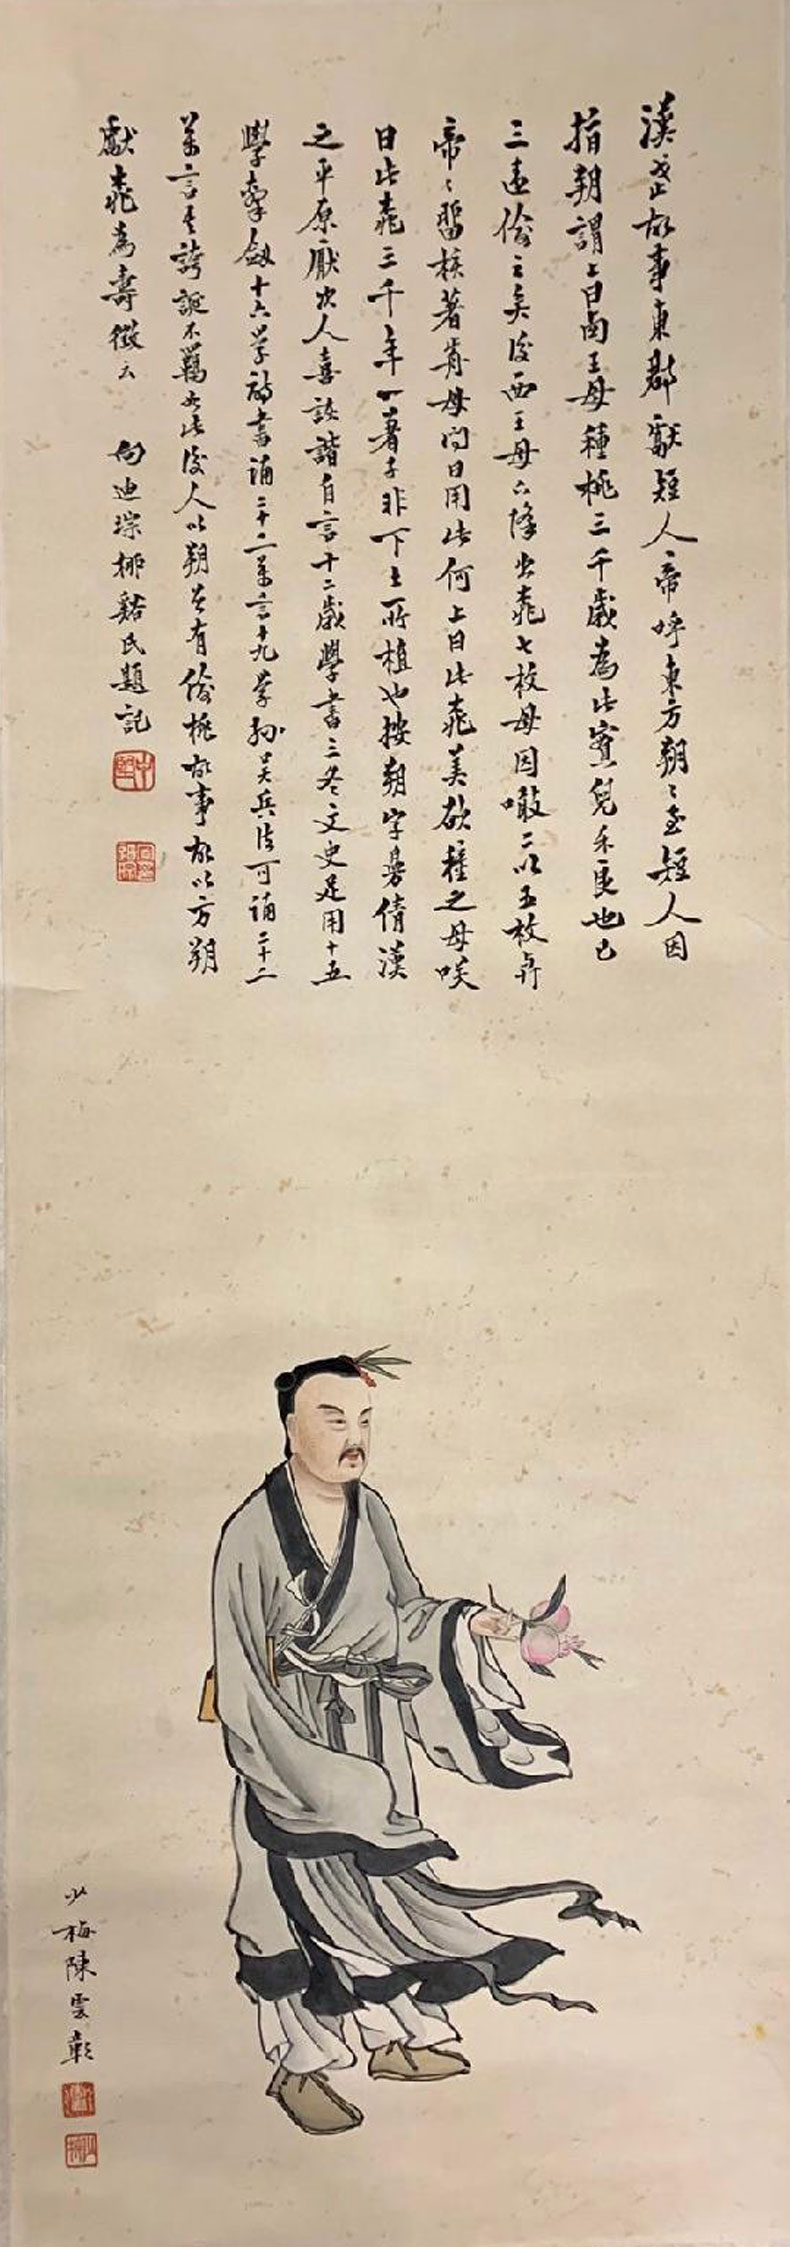 漢武故事東郡獻短人帝呼東方朔〻至短人因
指朔謂上曰西王母種桃三千歲為此實兒不良也已
三過偷之矣後西王母下降出桃七枚母因噉二以五枚與
帝〻留核著前母問曰用此何上曰此桃美欲種之母笑
曰此桃三千年一著子非下土所植也按朔字曼倩漢
之平原厭次人喜詼諧自言十二歲學書三冬文史足用十五
學擊劍十六學詩書誦二十二萬言十九學孫吳兵法可誦二十二
萬言其誇誕不羈如此後人以朔曾有偷桃故事故以方朔
獻桃為壽徵云 向迪琮柳谿氏題記
少梅陳雲彰